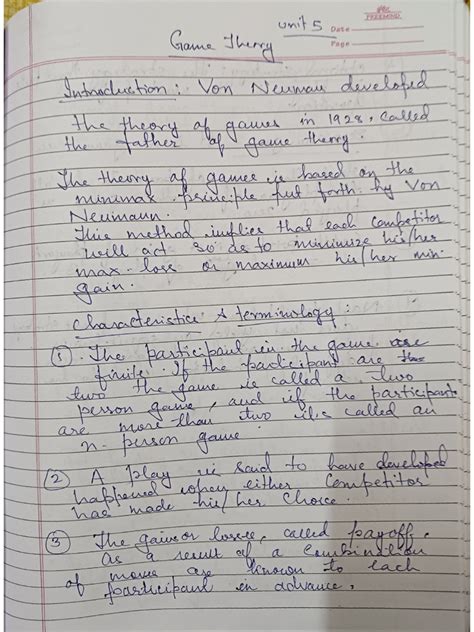 unit 5
Date
Page
FREEMIND
Game Therry
Introduction: Von Neuman developed
the theory of games in 1928, called
the father of game therry.
The theory of games is based on the
minimax principle put forth by Von
Neumann.
This method implies that each competitor
will act so as to minimize his/her
max. loss or maximum his/her min.
gain.
Characteristics & terminology:
① The participant in the game are
finite. If the participant are the
two the game is called a two
person game, and if the participant
are more than two it is called an
n-person game.
② A play is said to have developed
happened when either competitor
has made his/her choice.
③ The gains or losses, called payoff,
as a result of a combination
of moves are known to each
participant in advance.